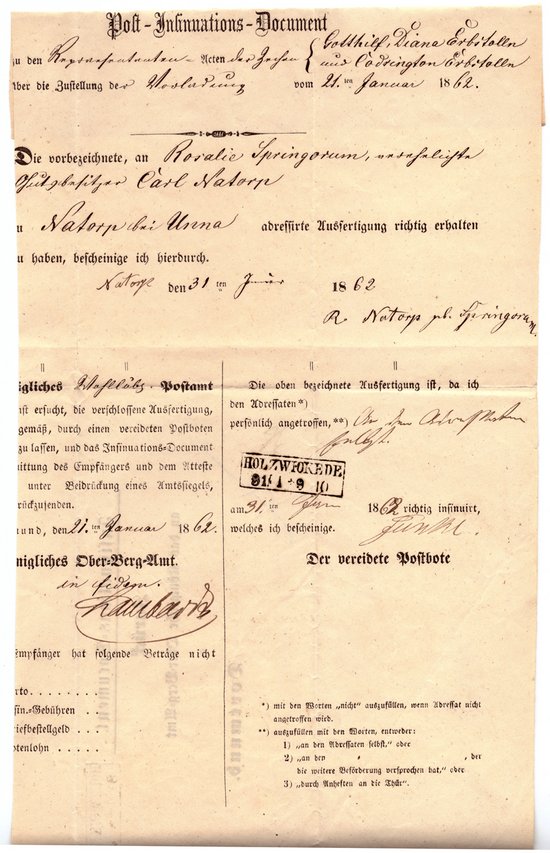 Post-Insinuations-Document
zu den Repräsentanten-Acten der Zechen { Gotthilf, Diana Erbstolln
und Codrington Erbstolln
über die Zustellung der Vorladung vom 21.ten Januar 1862.
Die vorbezeichnete, an Rosalie Springorum, verehelichte
Gutsbesitzer Carl Natorp
zu Natorp bei Unna adressirte Ausfertigung richtig erhalten
zu haben, bescheinige ich hierdurch.
Natorp den 31ten 1862
R. Natorp gb. Springorum.
nigliches Wohllöbl. Postamt
st ersucht, die verschlossene Ausfertigung,
gemäß, durch einen vereideten Postboten
zu lassen, und das Insinuations-Document
uittung des Empfängers und dem Atteste
unter Beidrückung eines Amtssiegels,
urückzusenden.
mund, den 21.ten Januar 1862.
nigliches Ober-Berg-Amt.
in fidem.
Empfänger hat folgende Beträge nicht
orto . . . . . . .
sin.-Gebühren . . . .
riefbestellgeld . . . .
otenlohn . . . . .
Die oben bezeichnete Ausfertigung ist, da ich
den Adressaten *)
persönlich angetroffen, **) An den Adressaten
selbst.
HOLZWICKEDE
31 1 * 9 10
am 31ten 1862 richtig insinuirt,
welches ich bescheinige.
Der vereidete Postbote
*) mit den Worten „nicht" auszufüllen, wenn Adressat nicht
angetroffen wird.
**) auszufüllen mit den Worten, entweder:
1) „an den Adressaten selbst," oder
2) „an den , der
die weitere Beförderung versprochen hat," oder
3) „durch Anheften an die Thür".